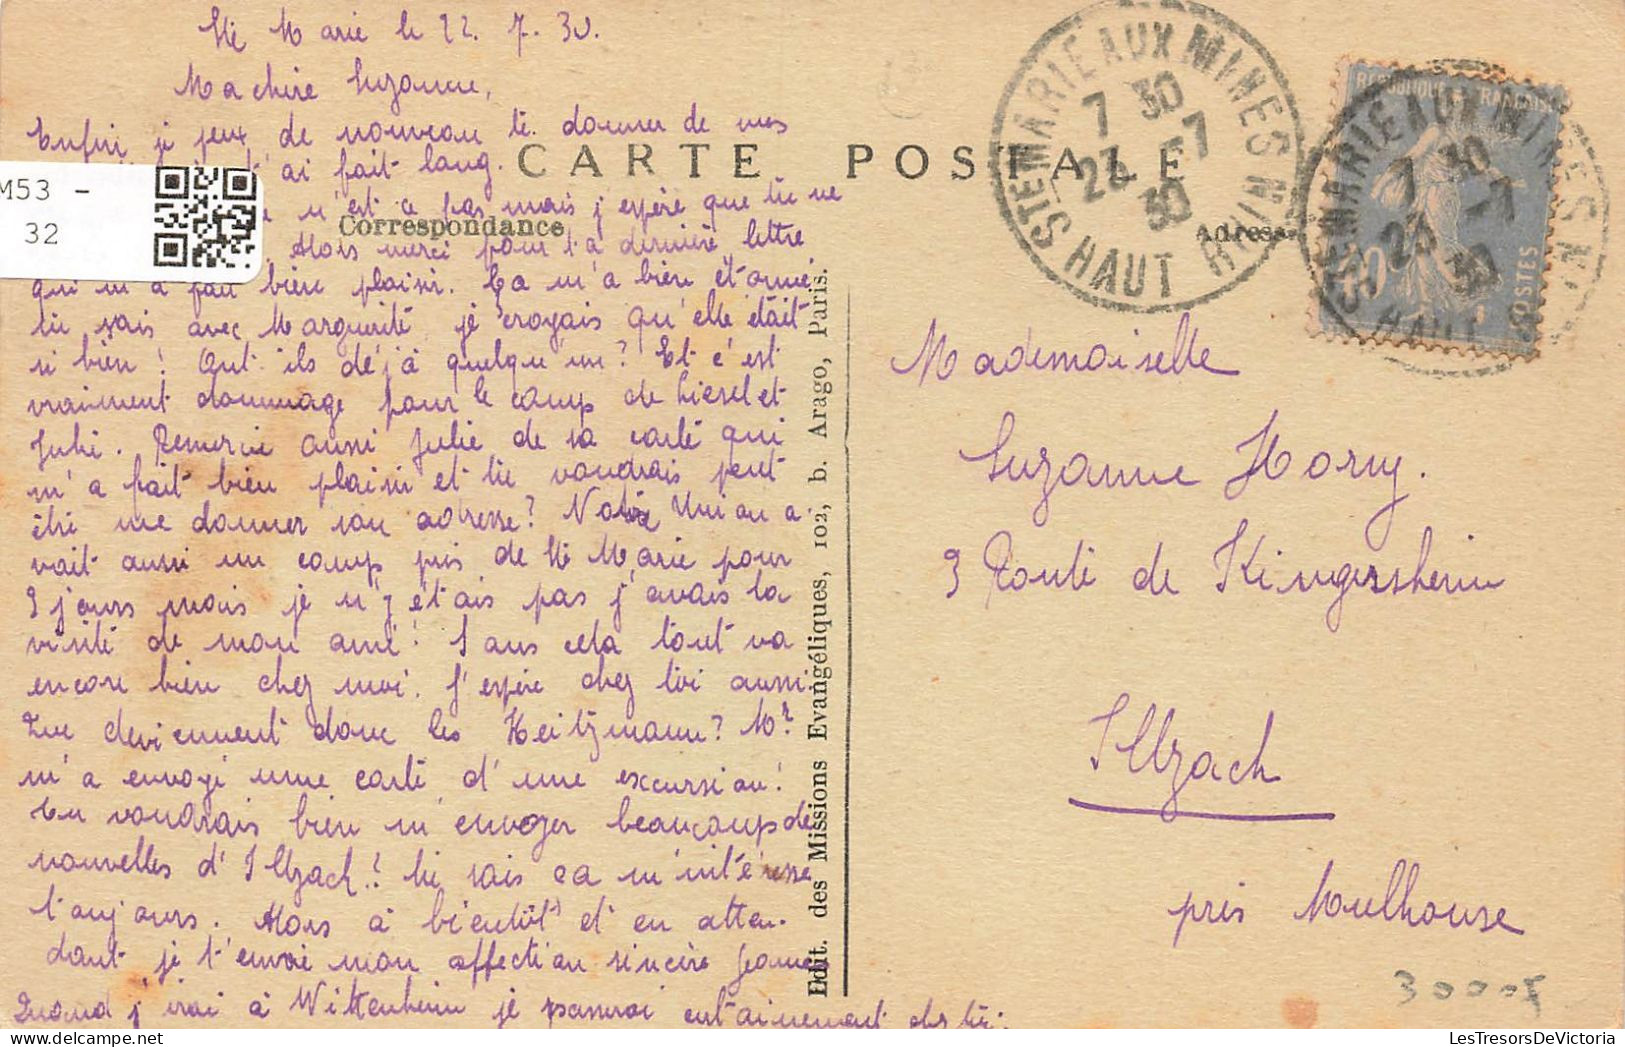 Ste Marie le 22. 7. 30.
Ma chère Suzanne,
Enfin je peux de nouveau te donner de mes
t'ai fait long.
n'est ce pas mais j'espère que tu ne
Alors merci pour ta dernière lettre
qui m'a fait bien plaisir. Ça m'a bien étonné,
tu sais avec Marguerite, je croyais qu'elle était
si bien! Ont-ils déjà quelqu'un? Et c'est
vraiment dommage pour le camp de Liesel et
Julie. Remercie aussi Julie de sa carte qui
m'a fait bien plaisir et tu voudrais peut
être me donner son adresse? Notre Union a-
vait aussi un camp près de Ste Marie pour
9 jours mais je n'y étais pas j'avais la
visite de mon amie! Sans cela tout va
encore bien chez moi. J'espère chez toi aussi.
Que deviennent donc les Heitzmann? Mr
m'a envoyé une carte d'une excursion!
Tu voudrais bien m'envoyer beaucoup de
nouvelles d'Illzach!! tu sais ça m'intéresse
toujours. Alors à bientôt et en atten-
dant je t'envoie mon affection sincère Jeanne
Quand j'irai à Wittenheim je passerai certainement chez toi.
M53 -
32
CARTE POSTALE
Correspondance
Adresse
Edit. des Missions Evangéliques, 102, b. Arago, Paris.
STE MARIE AUX MINES
7 30
23 -7
30
HAUT RHIN
REPUBLIQUE FRANÇAISE
POSTES
STE MARIE AUX MINES
7 30
23 -7
30
HAUT RHIN
Mademoiselle
Suzanne Horny.
9 Route de Kingersheim
Illzach
près Mulhouse
LesTresorsDeVictoria